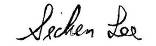 Sichen Lee